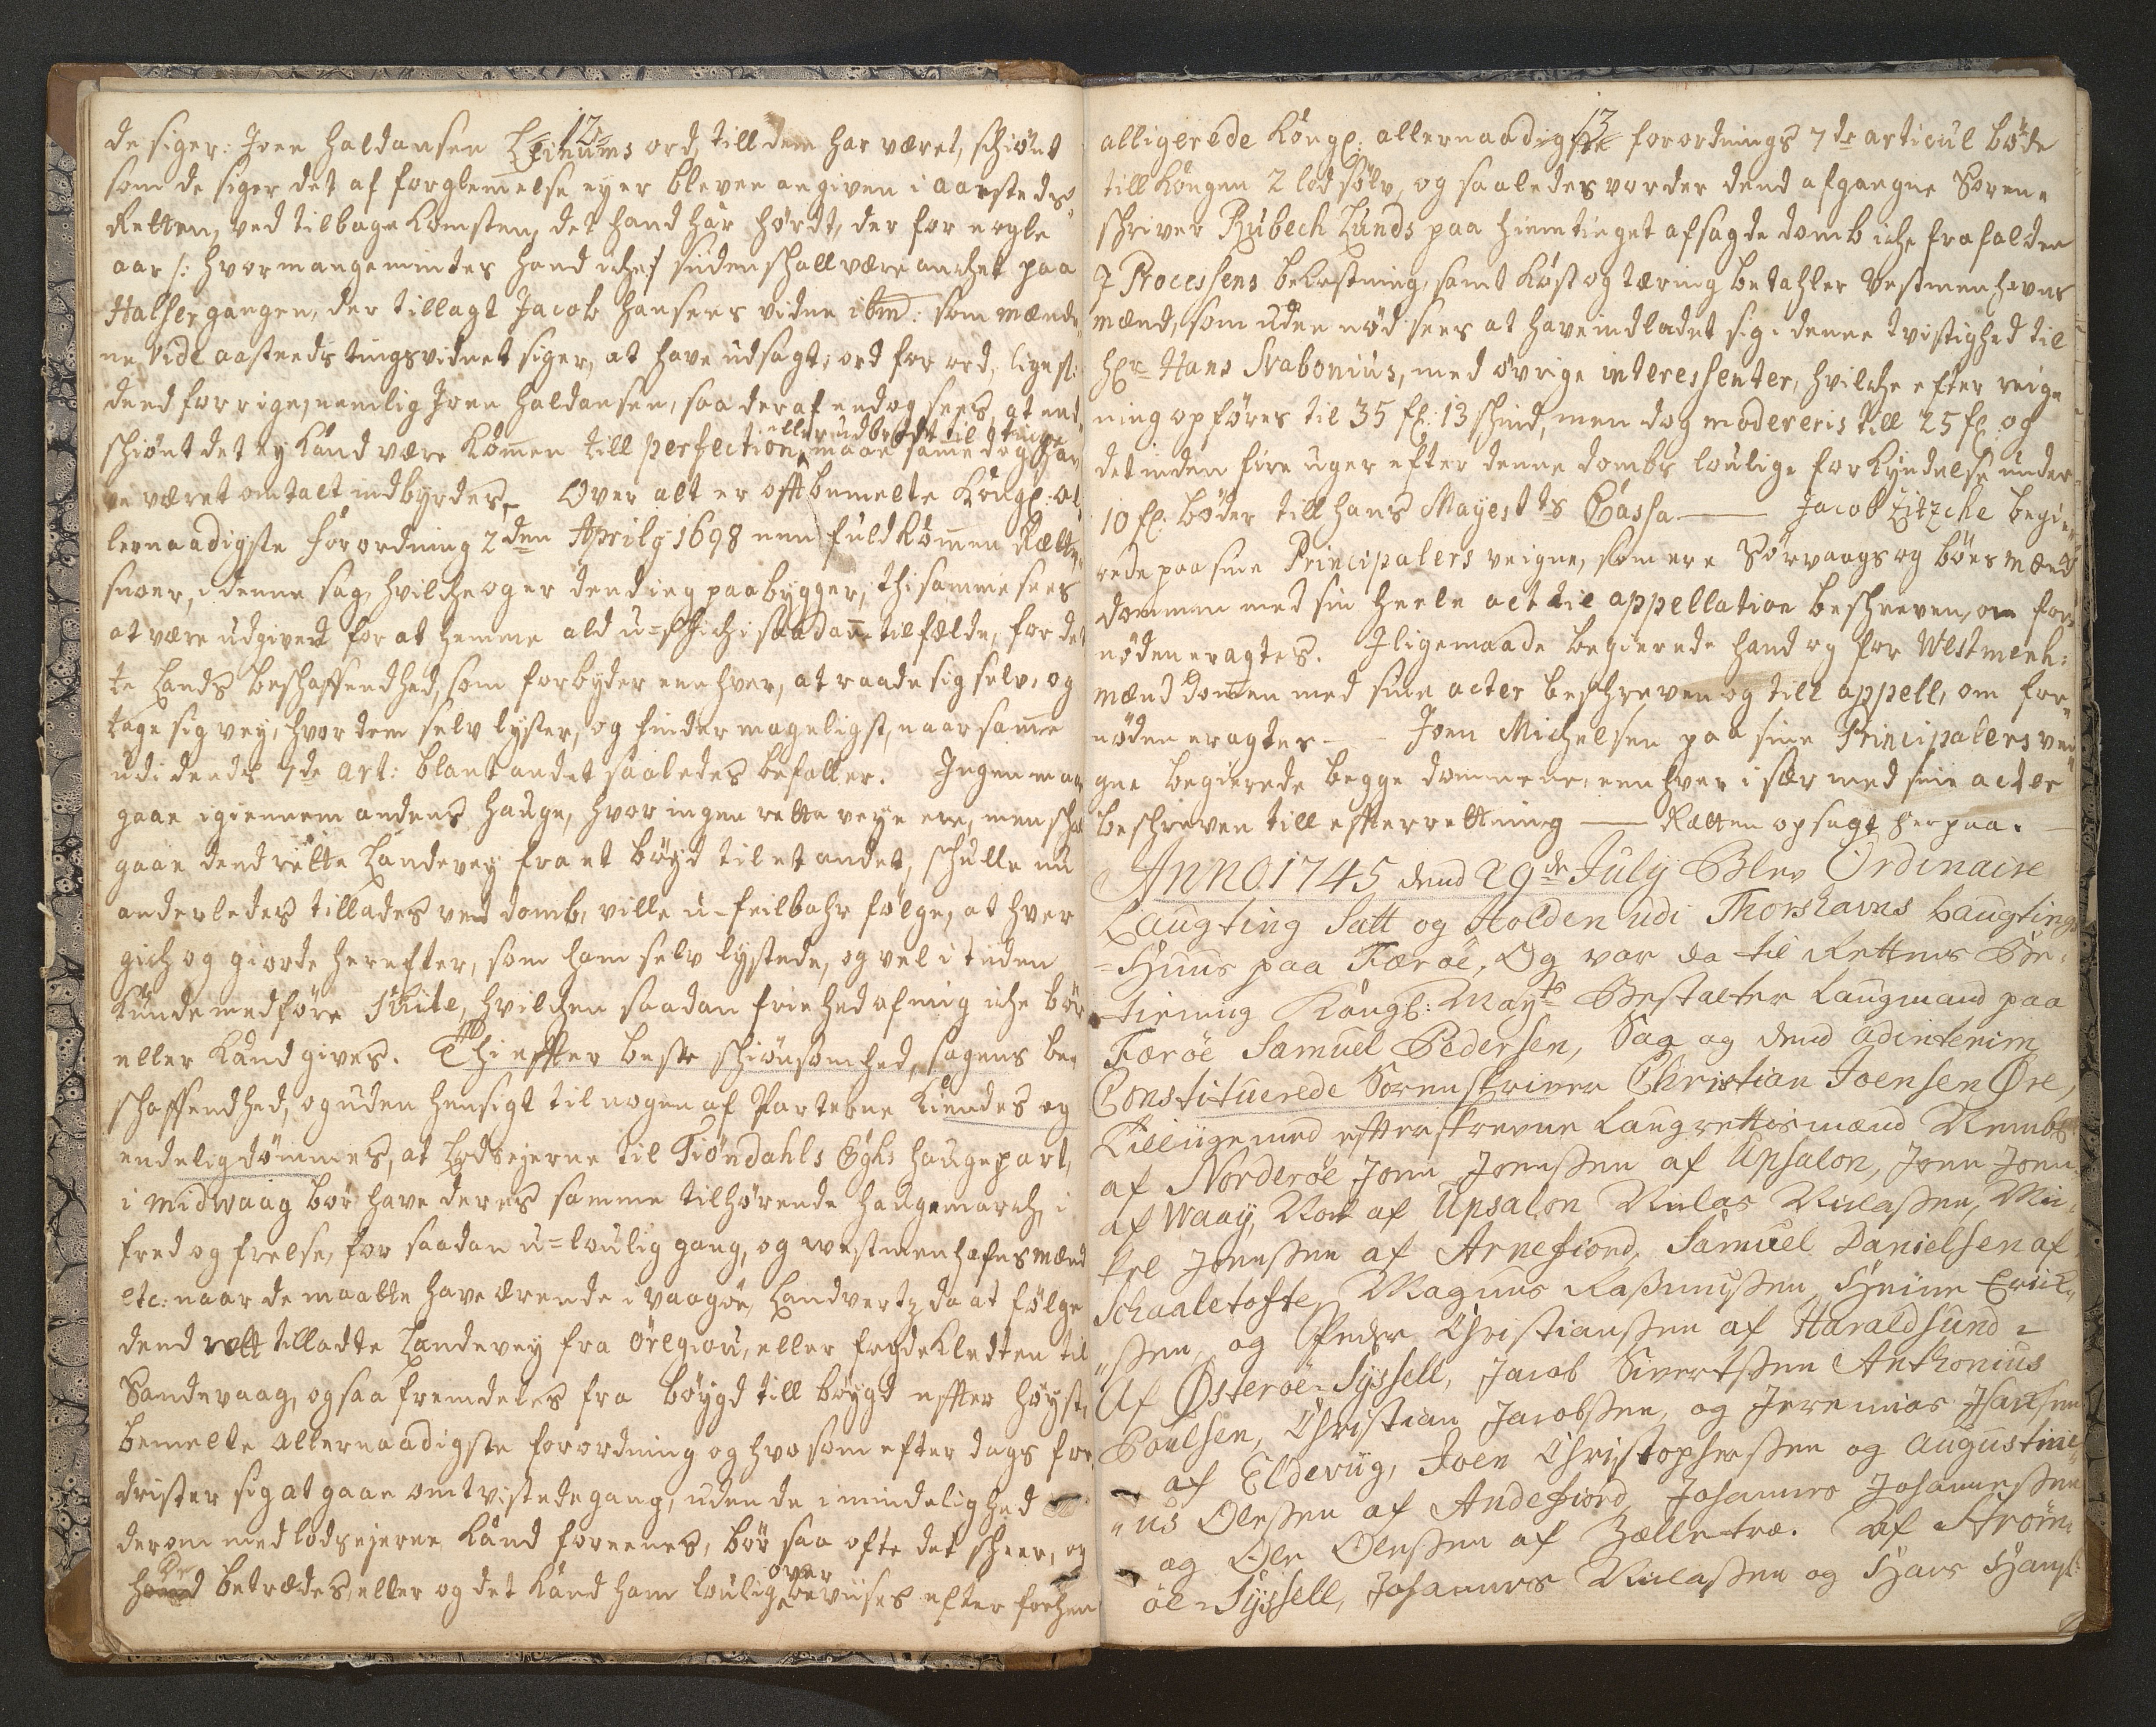 12
de siger: Joen Haldansen Leinums ord, till dem har været, schiönt
som de siger det af forglemelse ey er bleven angiven i aarsteds
Retten, ved tilbage komsten, det hand har hördt, der for nogle
aar /: hvor mange mindes hand iche :/ siden schall være anchet paa
Halser gangen, der tillagt Jacob Hansens vidne ibm: som mænde-
ne Vide aasteeds tingsvidnet siger, at have udsagt; ord for ord, lige sl:
dend forrige, nemlig Joen Haldansen, saa deraf endog sees, at end
schiönt det ey kand være kommen till perfection, eller udbrudt til dtinge maae same dog hav
ve været omtalt indbyrdes, Over alt er offtbemelte Kongl: al,
lernaadigste forordning 2den Aprily 1698 een fuldkommen Rætte
snoer, i denne sag, hvilche og er dend ieg paabygger, thi samme sees
at være udgivedt for at hemme ald u=schich i saadanne tilfælde, for det,
te Lands beschaffendhed, som forbyder een hver, at raade sig selv, og
tage sig vey, hvor dem selv lyster, og finder mageligst, naar samme
udi dends 7de art: blant andet saaledes befaller. Ingen maa
gaae igiennem andens hauge, hvor ingen rette veye ere, men schal
gaae dend rette Landevey fra et böyd til et andet, schulle nu
anderledes tillades ved domb, ville u-feilbahr fölge, at hver
gich og giorde herefter, som ham selv lystede, og vel i tiden
kunde medföre skite, hvilchen saadan friehed af mig iche bör
eller kand gives. Thi effter beste schiönsomhed, sagens be-
schaffendhed, og uden hensigt til nogen af Parterne kiendes og
endelig dömmes, at Lodsejerne til Tiöndahls Eghs haugepart,
i Midwaag bör have deres samme tilhörende haugemarch, i
fred og frelse, for saadan u=loulig gang, og westmenhafns mænd
etc: naar de maatte have ærende i vaagöe, Landvertz da at fölge
dend rett tilladte Landevey fra öregiou, eller fordekledten til
Sandevaag, og saa fremdeles fra böygd till böygd effter höyst,
bemelte allernaadigste forordning og hvo som efter dags for
drister sig at gaae omtvistede gang, uden de i mindelighed
derom med lodsejerne kand foreenes, bör saa ofte det scheer, og
De betrædes, eller og det kand ham loulig over beviises efter forhen
13
alligerede Kongl: allernaadigste forordnings 7de articul böde
till Kongen 2 lod sölv, og saaledes vorder dend afgangne Soren-
schriver Rubech Lunds paa hiemtinget afsagde domb iche frafalden
J Processens bekostning, samt kost og tæring betahler Vestmenhavns
mænd, som uden nöd sees at have indladet sig i denne tvistighed til
hr Hans Svabonius, med övrige interessenter, hvilche efter reig-
ning opföres til 35 fl: 13 schind, men dog modereris till 25 fl: og
det inden fire uger efter denne dombs loulige forkyndelse under
10 fl. böder till hans Mayestts Cassa — Jacob Litzche begie-
rede paa sine Principalers veigne, som ere Sörvaags og böes mænd
dommen med sin heele act til appellation beschreven, om for-
nöden eragtes. Iligemaade begierede hand og for Westmenh:
mænd domen med sine acter beschreven og till appell, om for-
nöden eragtes — Joen Michelsen paa sine Principalers vei
gne begierede begge dommene, een hver i sær med sine acter
beschreven till efterrettning — Rætten opsagt herpaa.
Anno 1745 dend 29de July Blev Ordinaire
Laugting Satt og Holden udi Thorshavns Laugtings
=Huus paa Færöe, Og var da til Rettens Be-
tiening Kongl: Mayts Bestalter Laugmand paa
Færöe Samuel Pedersen, Saa og dend adinterim
Constituerede Sorenskriver Christian Joensen Øre,
Tilliige med effterskrevne Laugrettismænd Nembl:
af Norderöe Joen Joensen af Upsalon, Joen Joens:
af Waay, Noe af Upsalon Niclas Niclassen, Mic-
kel Joenssen af Arnefiord, Samuel Danielsen af
Schaaletofte, Magnus Rassmussen, Heine Erick-
ssen, og Peder Christianssen af Haraldsund =
Af Østeröe=Syssell, Jacob Sivertssen Anthonius
Poulsen, Christian Jacobssen, og Jeremias Hansen
af Eldeviig, Joen Christophersen og Augustine
us Olessen af Andefiord, Johannes Johannessen
og Ole Olessen af Zælletræ. Af Ström-
öe=Syssell, Johannes Niclassen og Hans Hansl: